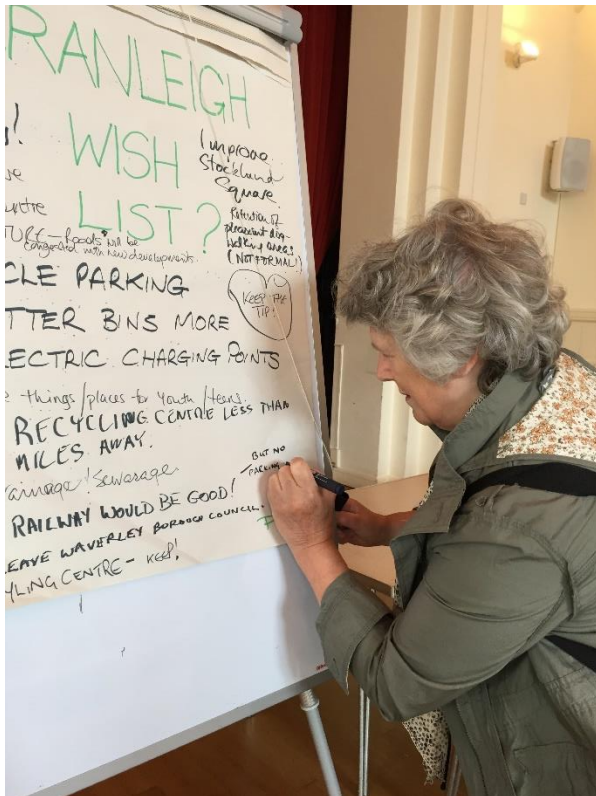 RANLEIGH
WISH
LIST?
Improve
Stocklund
Square
Retention of
pleasant dog-
walking areas!
(NOT FORMAL!)
TURE - Roads will be
congested with new developments.
CLE PARKING
KEEP THE
TIP!
TTER BINS MORE
ECTRIC CHARGING POINTS
things/places for Youth/teens.
RECYCLING CENTRE LESS THAN
MILES AWAY.
Sewerage
BUT NO
PARKING
RAILWAY WOULD BE GOOD!
LEAVE WAVERLEY BOROUGH COUNCIL.
YLING CENTRE - KEEP!